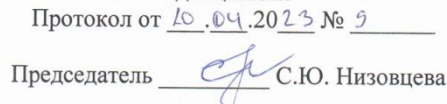 Протокол от 10.04.2023 № 9
Председатель С.Ю. Низовцева